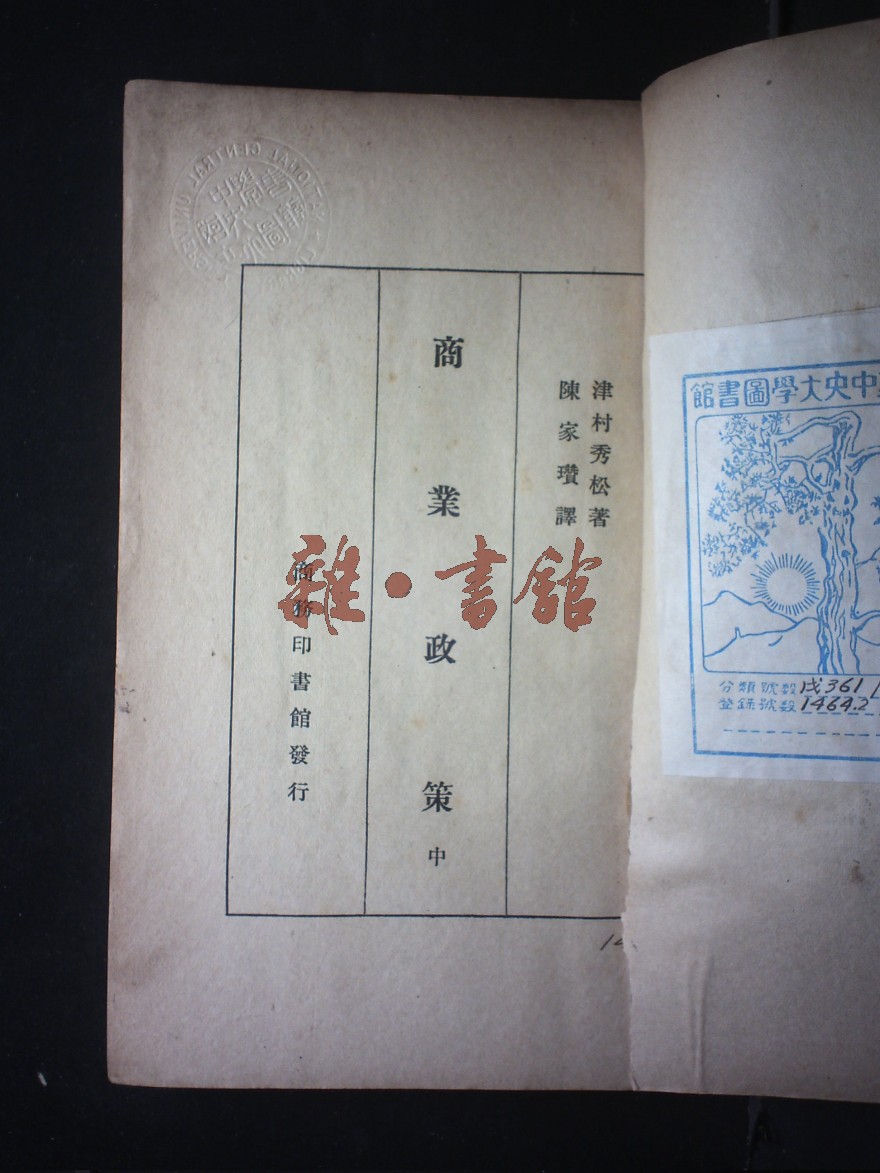 津村秀松著
陳家瓚譯
商業政策 中
商務印書館發行
雜·書館
中央大學圖書館
分類號數 戊361
登錄號數 1464.2
NATIONAL CENTRAL
14